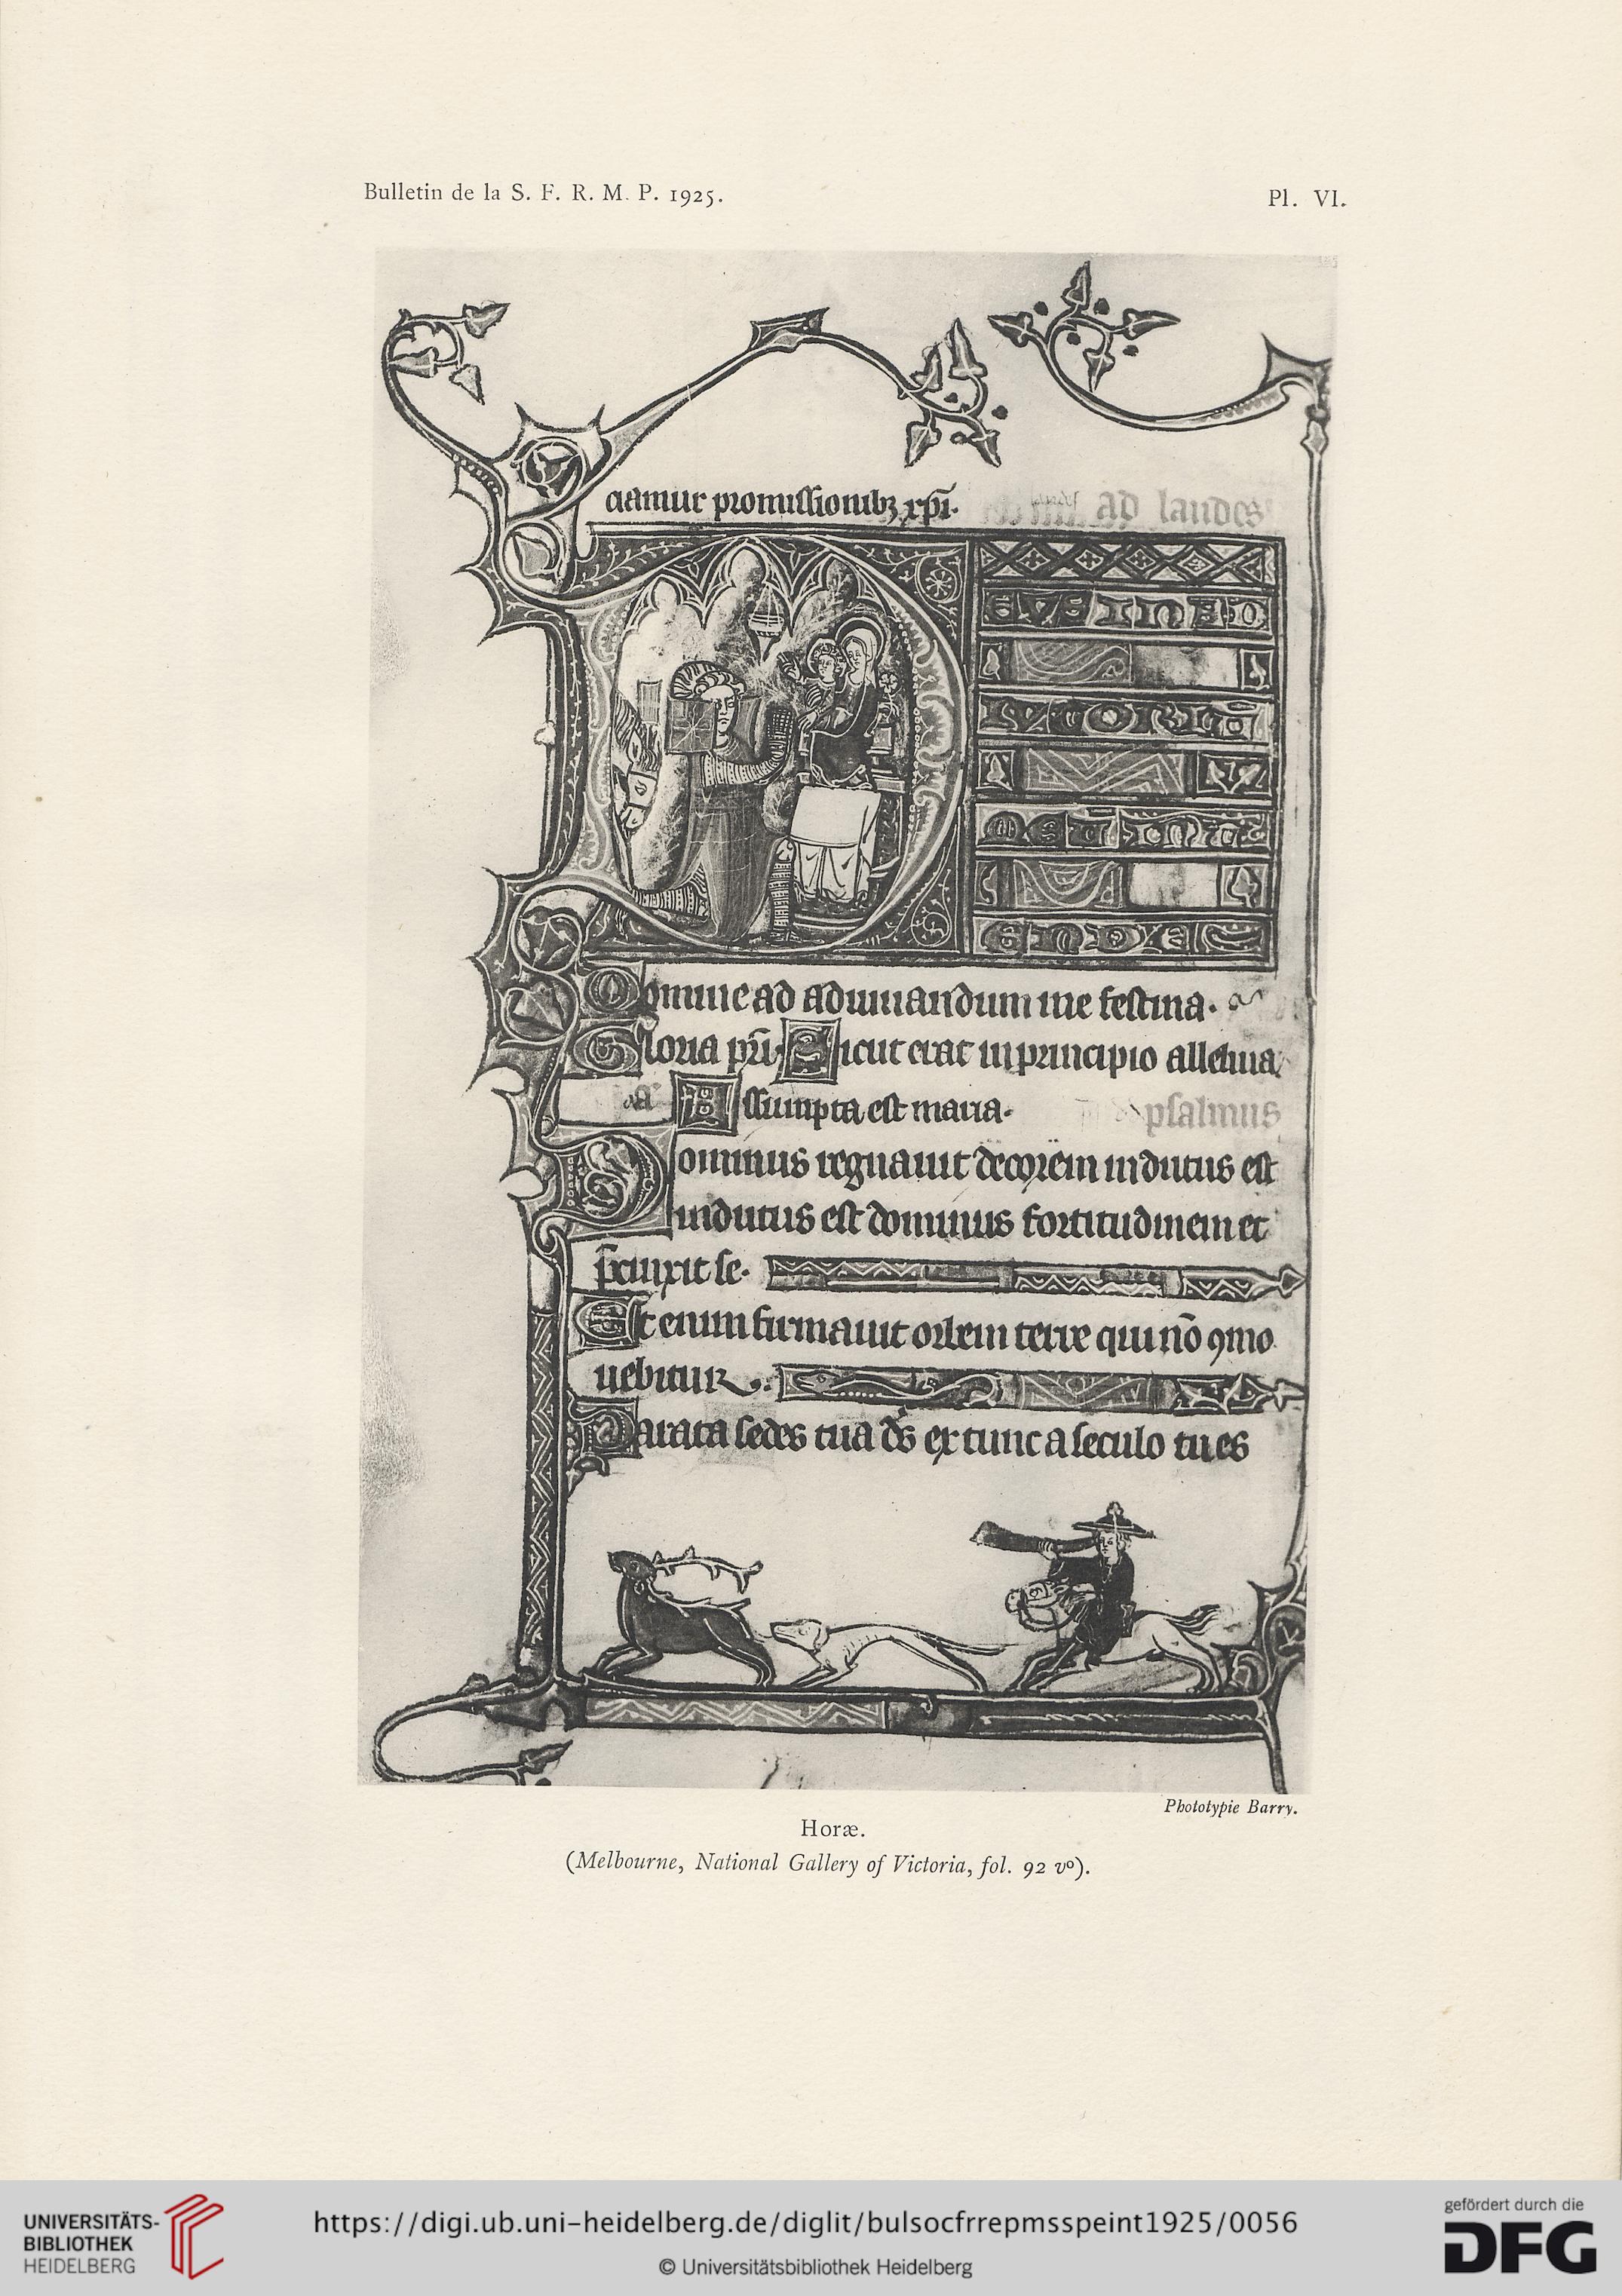 Bulletin de la S. F. R. M. P. 1925.
Pl. VI.
ciamur promissionibꝫ xp̄i.
ad laudes
EUS IN AD
IUTORIŪ
MEUM INT
ENDE
Domine ad adiuuandum me festina.
Gloria pr̄i. Sicut erat in principio alleluia.
añ Assumpta est maria.
psalmus
Dominus regnauit decorem indutus est
indutus est dominus fortitudinem et
p̄cinxit se.
Et enim firmauit orbem terre qui nō ꝯmo
uebitur.
Parata sedes tua ds̄ ex tunc a seculo tu es
Phototypie Barry.
Horæ.
(Melbourne, National Gallery of Victoria, fol. 92 vº).
UNIVERSITÄTS-
BIBLIOTHEK
HEIDELBERG
https://digi.ub.uni-heidelberg.de/diglit/bulsocfrrepmsspeint1925/0056
© Universitätsbibliothek Heidelberg
gefördert durch die
DFG